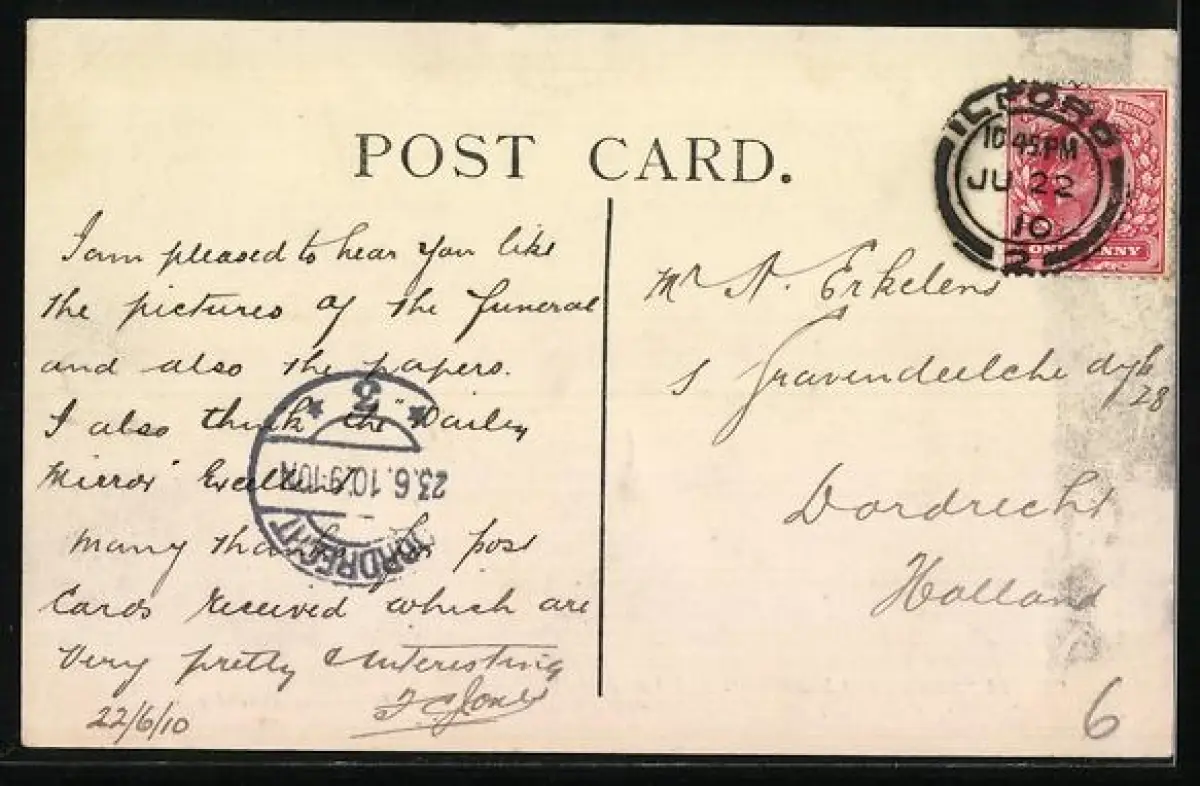 POST CARD.
ILFORD
10.45 PM
JU 22
10
2
ONE PENNY
I am pleased to hear you like
the pictures of the funeral
and also the papers.
I also think the "Dailey
Mirror" Excellent
Many thanks for post
Cards received which are
Very pretty & Interesting
F C Jones
22/6/10
DORDRECHT
23.6.10. 9-10 N
2
Mr A. Erkelens
s Gravendeelche dyk
28
Dordrecht
Holland
6